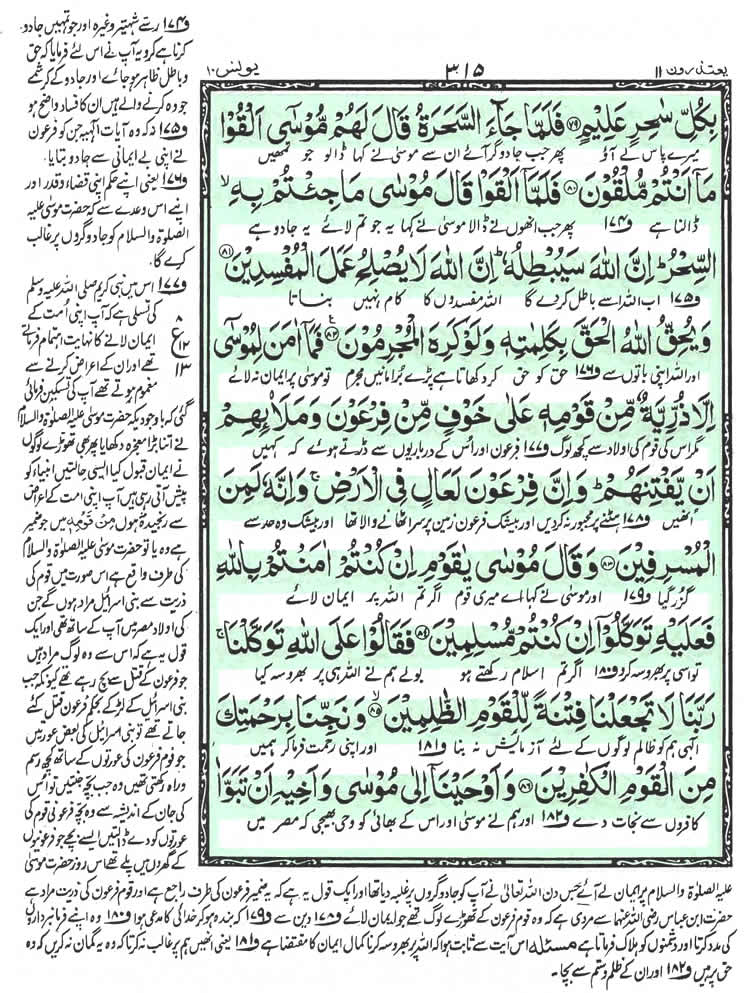 یعتذرون ۱۱
۳۱۵
یونس ۱۰
بِكُلِّ سٰحِرٍ عَلِيْمٍ ﴿۷۹﴾ فَلَمَّا جَآءَ السَّحَرَةُ قَالَ لَهُمْ مُّوْسٰۤى اَلْقُوْا
میرے پاس لے آؤ پھر جب جادوگر آئے ان سے موسیٰ نے کہا ڈالو جو تمھیں
مَاۤ اَنْتُمْ مُّلْقُوْنَ ﴿۸۰﴾ فَلَمَّاۤ اَلْقَوْا قَالَ مُوْسٰى مَا جِئْتُمْ بِهِ ۙ
ڈالنا ہے و۱۷۴ پھر جب انھوں نے ڈالا موسیٰ نے کہا یہ جو تم لائے یہ جادو ہے
السِّحْرُ ؕ اِنَّ اللّٰهَ سَيُبْطِلُهٗ ؕ اِنَّ اللّٰهَ لَا يُصْلِحُ عَمَلَ الْمُفْسِدِيْنَ ﴿۸۱﴾
و۱۷۵ اب اللہ اسے باطل کر دے گا اللہ مفسدوں کا کام نہیں بناتا
وَيُحِقُّ اللّٰهُ الْحَقَّ بِكَلِمٰتِهٖ وَلَوْ كَرِهَ الْمُجْرِمُوْنَ ﴿۸۲﴾ فَمَاۤ اٰمَنَ لِمُوْسٰۤى
اور اللہ اپنی باتوں سے و۱۷۶ حق کو حق کر دکھاتا ہے پڑے بُرا مانیں مجرم تو موسیٰ پر ایمان نہ لائے
اِلَّا ذُرِّيَّةٌ مِّنْ قَوْمِهٖ عَلٰى خَوْفٍ مِّنْ فِرْعَوْنَ وَمَلَاۡئِهِمْ
مگر اس کی قوم کی اولاد سے کچھ لوگ و۱۷۷ فرعون اور اس کے درباریوں سے ڈرتے ہوئے کہ کہیں
اَنْ يَّفْتِنَهُمْ ؕ وَاِنَّ فِرْعَوْنَ لَعَالٍ فِى الْاَرْضِ ۚ وَاِنَّهٗ لَمِنَ
انھیں و۱۷۸ ہٹنے پر مجبور نہ کر دیں اور بیشک فرعون زمین پر سر اٹھانے والا تھا اور بیشک وہ حد سے
الْمُسْرِفِيْنَ ﴿۸۳﴾ وَقَالَ مُوْسٰى يٰقَوْمِ اِنْ كُنْتُمْ اٰمَنْتُمْ بِاللّٰهِ
گزر گیا و۱۷۹ اور موسیٰ نے کہا اے میری قوم اگر تم اللہ پر ایمان لائے
فَعَلَيْهِ تَوَكَّلُوْۤا اِنْ كُنْتُمْ مُّسْلِمِيْنَ ﴿۸۴﴾ فَقَالُوْا عَلَى اللّٰهِ تَوَكَّلْنَا ۚ
تو اسی پر بھروسہ کرو و۱۸۰ اگر تم اسلام رکھتے ہو بولے ہم نے اللہ ہی پر بھروسہ کیا
رَبَّنَا لَا تَجْعَلْنَا فِتْنَةً لِّلْقَوْمِ الظّٰلِمِيْنَ ﴿۸۵﴾ وَنَجِّنَا بِرَحْمَتِكَ
الٰہی ہم کو ظالم لوگوں کے لئے آزمایش نہ بنا و۱۸۱ اور اپنی رحمت فرما کر ہمیں
مِنَ الْقَوْمِ الْكٰفِرِيْنَ ﴿۸۶﴾ وَاَوْحَيْنَاۤ اِلٰى مُوْسٰى وَاَخِيْهِ اَنْ تَبَوَّاٰ
کافروں سے نجات دے و۱۸۲ اور ہم نے موسیٰ اور اس کے بھائی کو وحی بھیجی کہ مصر میں
و۱۷۴ رسے شہتیر وغیرہ اور جو تمھیں جادو
کرنا ہے کرو یہ آپ نے اس لئے فرمایا کہ حق
و باطل ظاہر ہو جائے اور جادو کے کرشمے
جو وہ کرنے والے ہیں ان کا فساد واضح ہو
و۱۷۵ نہ کہ وہ آیات الٰہیہ جن کو فرعون
نے اپنی بے ایمانی سے جادو بتایا۔
و۱۷۶ یعنی اپنے حکم اپنی قضاء و قدر اور
اپنے اس وعدے سے کہ حضرت موسیٰ علیہ
الصلوٰۃ والسلام کو جادوگروں پر غالب
کرے گا۔
و۱۷۷ اس میں نبی کریم صلی اللہ علیہ وسلم
کی تسلی ہے کہ آپ اپنی اُمت کے
ایمان لانے کا نہایت اہتمام فرماتے
تھے اور ان کے اعراض کرنے سے
مغموم ہوتے تھے آپ کی تسکین فرمائی
گئی کہ باوجودیکہ حضرت موسیٰ علیہ الصلوٰۃ والسلام
نے اتنا بڑا معجزہ دکھایا پھر بھی تھوڑے لوگوں
نے ایمان قبول کیا ایسی حالتیں انبیاء کو
پیش آتی رہی ہیں آپ اپنی امت کے اعراض
سے رنجیدہ نہ ہوں مِنْ قَوْمِهٖ میں جو ضمیر
ہے وہ یا تو حضرت موسیٰ علیہ الصلوٰۃ والسلام
کی طرف راجع ہے اس صورت میں قوم کی
ذریت سے بنی اسرائیل مراد ہوں گے جن
کی اولاد مصر میں آپ کے ساتھ تھی اور ایک
قول یہ ہے کہ اس سے وہ لوگ مراد ہیں
جو فرعون کے قتل سے بچ رہے تھے کیونکہ جب
بنی اسرائیل کے لڑکے بحکم فرعون قتل کئے
جاتے تھے تو بنی اسرائیل کی بعض عورتیں
جو قوم فرعون کی عورتوں کے ساتھ کچھ رسم
و راہ رکھتی تھیں وہ جب بچہ جنتیں تو اس
کی جان کے اندیشہ سے وہ بچہ فرعونی قوم کی
عورتوں کو دے ڈالتیں ایسے بچے جو فرعونیوں
کے گھروں میں پلے تھے اس روز حضرت موسیٰ
۸
ع
۱۲
۱۳
علیہ الصلوٰۃ والسلام پر ایمان لے آئے جس دن اللہ تعالیٰ نے آپ کو جادوگروں پر غلبہ دیا تھا اور ایک قول یہ ہے کہ یہ ضمیر فرعون کی طرف راجع ہے اور قوم فرعون کی ذریت مراد ہے
حضرت ابن عباس رضی اللہ عنہما سے مروی ہے کہ وہ قوم فرعون کے تھوڑے لوگ تھے جو ایمان لائے و۱۷۸ دین سے و۱۷۹ کہ بندہ ہو کر خدائی کا مدعی ہوا و۱۸۰ وہ اپنے فرمانبرداروں
کی مدد کرتا اور دشمنوں کو ہلاک فرماتا ہے مسئلہ اس آیت سے ثابت ہوا کہ اللہ پر بھروسہ کرنا کمال ایمان کا مقتضا ہے و۱۸۱ یعنی انھیں ہم پر غالب نہ کر تاکہ وہ یہ گمان نہ کریں کہ وہ
حق پر ہیں و۱۸۲ اور ان کے ظلم و ستم سے بچا۔